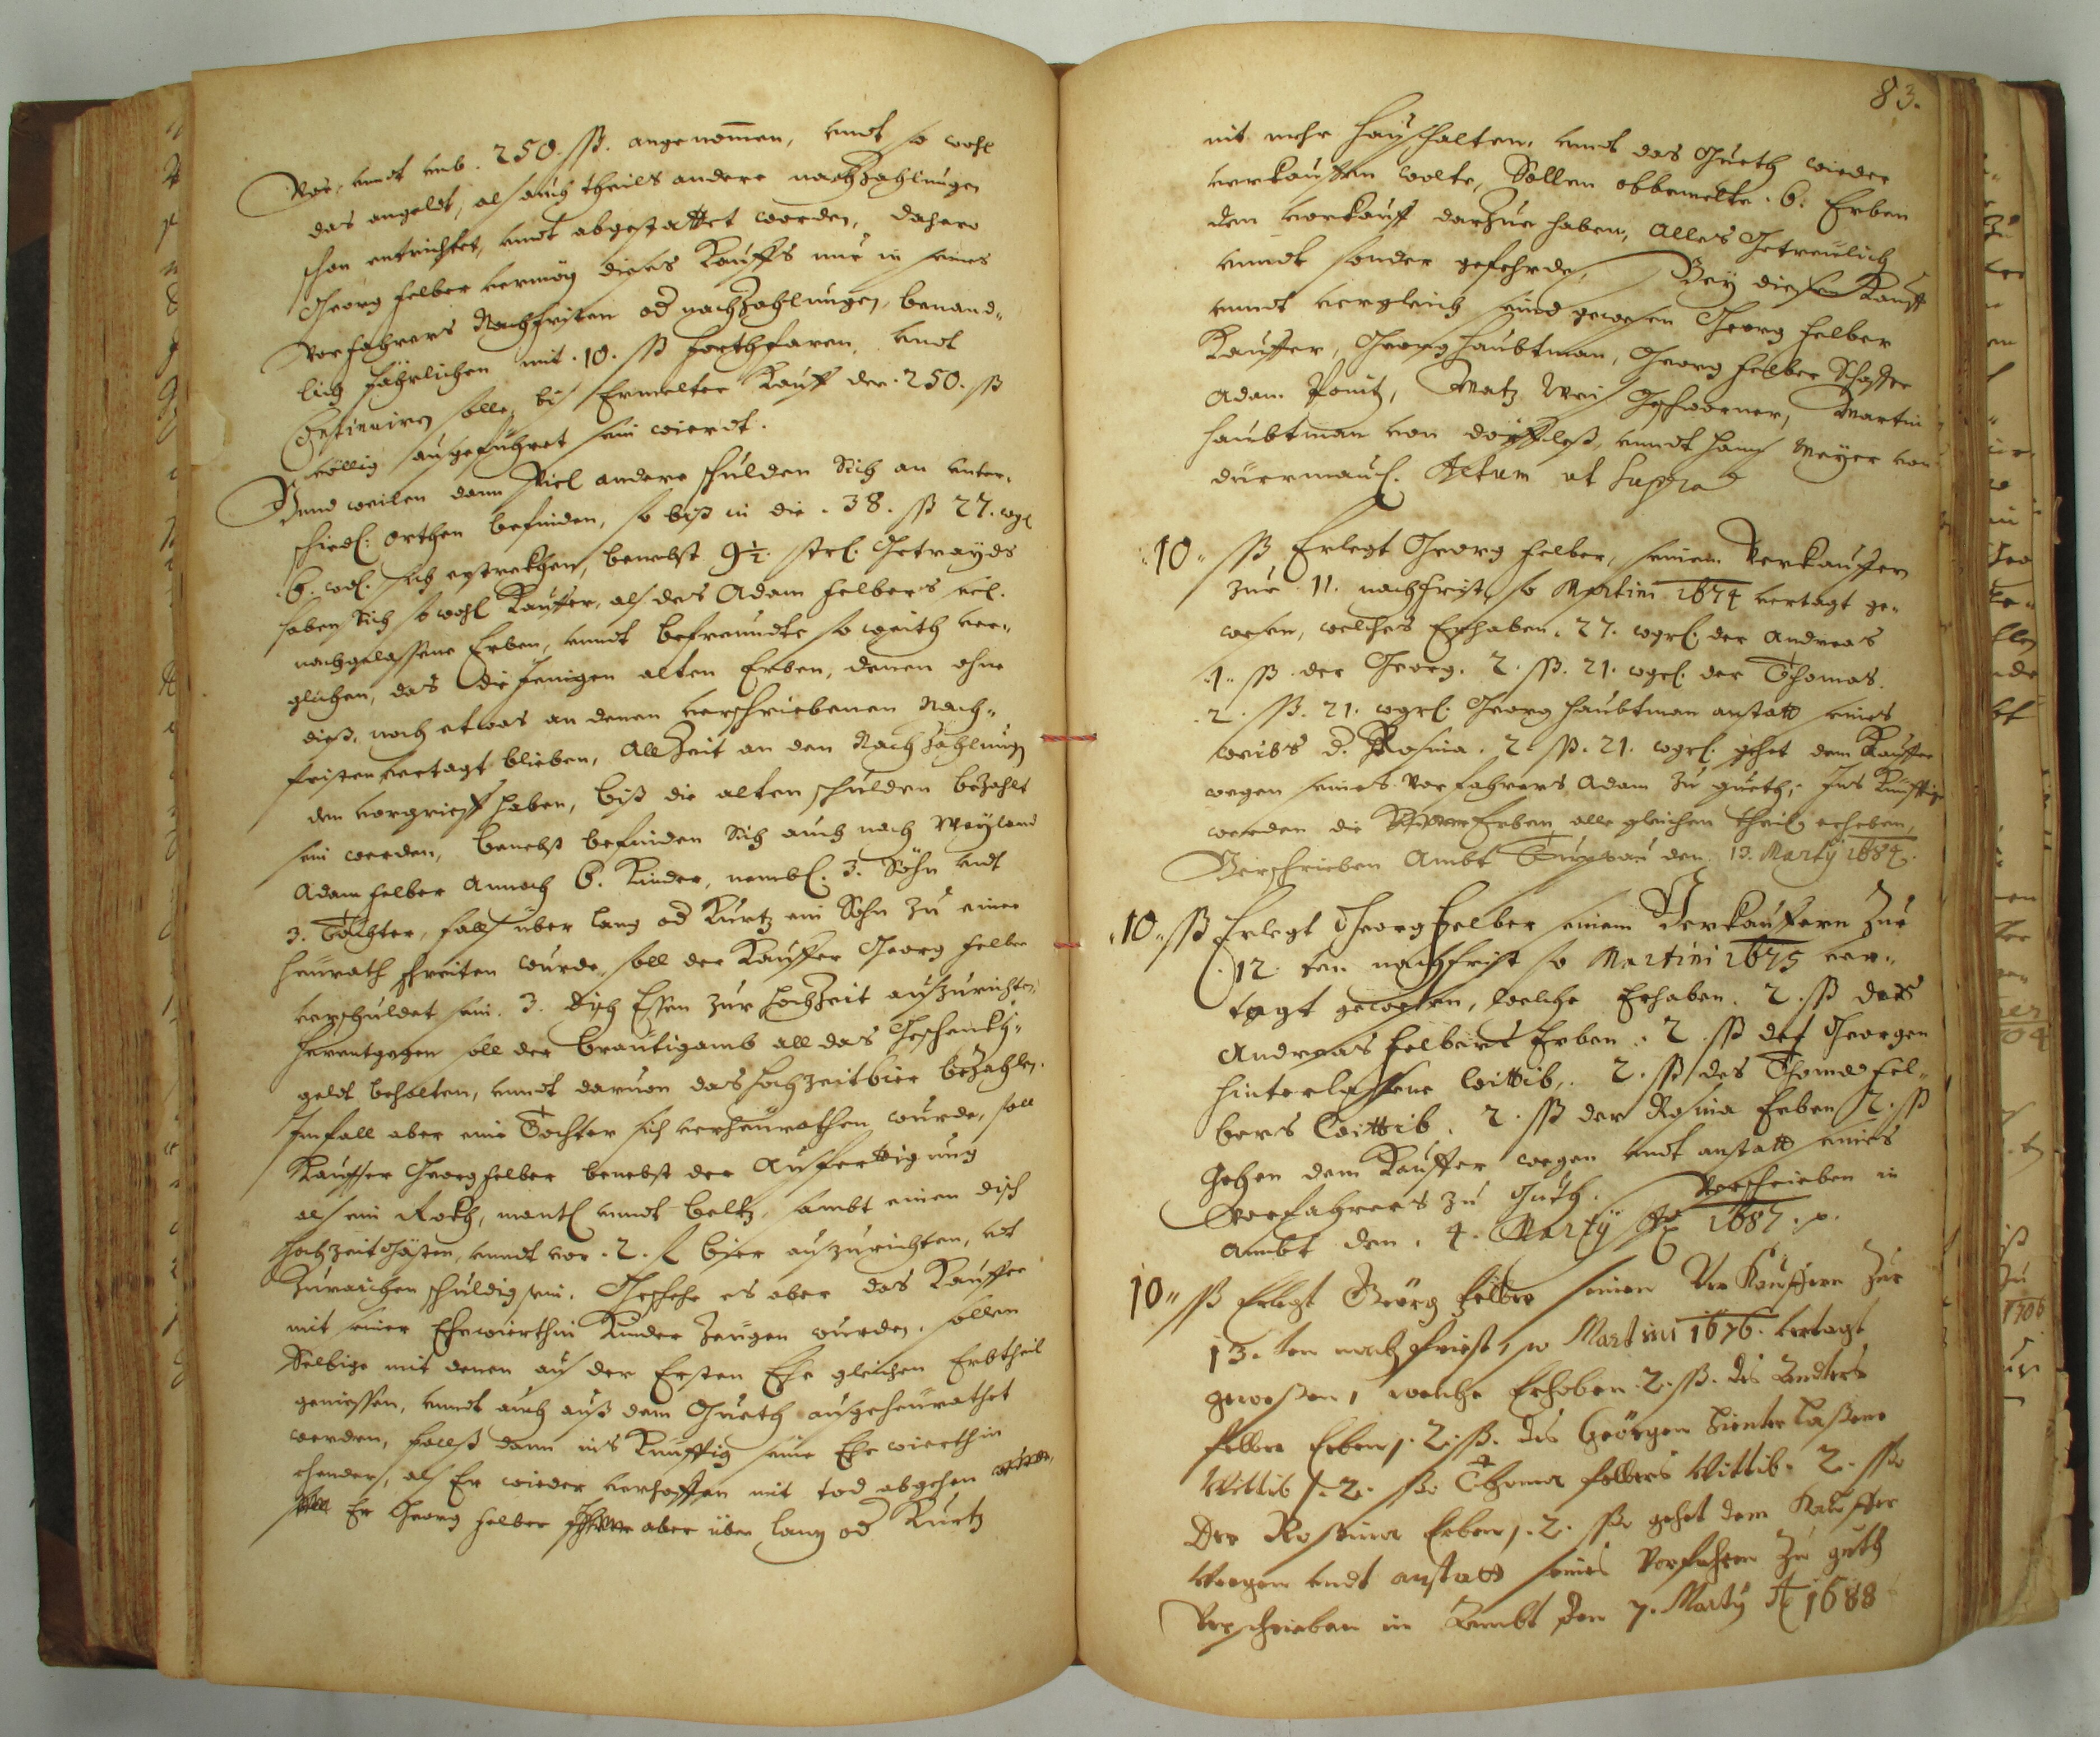 Vor, undt umb. 250. ßß. angenommen, undt so wohl
das angeldt, als auch theils andere nachzahlungen
schon entrichtet, undt abgestattet worden, dahero
Georg Felber vermög dieses Kauffs nur in seines
Vorfahrers Nachfristen od nachzahlungen, benand„
lich jährlichen mit .10. ßß forthfaren, undt
Continuiren solle, bis Ermelter Kauff der .250. ßß
völlig ausgeführet sein wierdt.
Unnd weilen dann Viel andere schulden Sich an unter„
schiedl: orthen befinden, so biß in die .38. ßß 27. wgl
.6. wdl. sich erstreckhen, benebst 9½. strl. Getrayds
haben Sich so wohl Kauffer, als des Adam Felbers
nachgelassene Erben, unndt befreundte so weith ver„
glichen, das die Jenigen alten Erben, denen ohne
dieß, noch etwas an denen verschriebenen Nach„
fristen vertagt blieben, Allzeit an den Nachzahlungen
den vorgrieff haben, biß die alten schulden bezahlt
sein werden, benebst befinden Sich auch nach Weyland
Adam Felber Annoch 6. Kinder, nembl. 3. Söhn undt
3. Töchter, falls über lang od Kurtz ein Sohn zu einer
heürath schreiten würde, soll der Kauffer Georg Felber
verschuldet sein. 3. disch Essen zur hochzeit auszurichten,
herentgegen soll der breutigamb all das Geschenkh„
geldt behalten, unndt daruon das hochzeitbier bezahlen.
Imfall aber eine Tochter sich verheürathen würde, soll
Kauffer Georg Felber benebst der Ausferttigung
als ein Rockh, mantl unndt beltz, sambt einen disch
hochzeit Gästen, unndt vor .2. f. bier auszurichten, undt
zureichen schuldig sein. Geschehe es aber das Kauffer
mit seiner Ehewierthin Kinder zeügen würde, sollen
Selbige mit denen aus der Ersten Ehe gleichen Erbtheil
geniessen, unndt auch auß dem Gueth ausgeheürathet
werden, fallß dann ins Künfftig seine Ehewierthin
ehender, als Er wieder verhoffen mit tod abgehen
Er Georg Felber aber über lang od Kurtz
83.
nit mehr haußhalten, unndt das Gueth wieder
verkauffen wolte, Sollen obbemelte .6. Erben
den vorkauff darzue haben, Alles Getreülich
unndt sonder gefehrde, Bey diesen Kauff
unndt vergleich sind gewesen Georg Felber
Kauffer, Georg Haubtman, Georg Felber
Adam Ponitz, Matz Geschworner, Martin
Haubtman von dörffleß, unndt Hans Meyer von
dürrmaul. Actum ut Supra
„10„ ßß Erlegt Georg Felber, seinem Verkauffern
zur .11. nachfrist, so Martini 1674 vertagt ge„
wesen, welches Erhaben. 27. wgrl. der Andreas
.1. ßß der Georg. 2. ßß. 21. wgrl. der Thomas.
.2. ßß. 21. wgrl. Georg Haubtman anstatt seines
weibs d. Rosina. 2. ßß. 21. wgrl. gehet dem Kauffer
wegen seines Vorfahrers Adam zu gueth, Ins Künfftige
werden die Erben alle gleichen theil erheben,
Verschrieben Ambt den 13. Marty 1684.
„10„ ßß Erlegt Georg Felber seinem Verkauffern zur
.12. ten nachfrist so Martini 1675 ver„
tagt gewesen, welche Erhaben. 2. ßß des
Andreas Felbers Erben. 2 ßß des Georgen
hinterlassene Wittib, 2. ßß des Thomas Fel„
bers Wittib. 2. ßß der Rosina Erben 2. ßß
Gehen dem Kauffer wegen undt anstatt seines
Vorfahrers zu Guth. Verschrieben in
Ambt den. 4. Marty Ao 1687.
10„ ßß Erlegt Geörg Felber seinen Verkauffern Zur
13. ten nachfriest, so Martini 1676. vertagt
geweßen, welche Erhoben. 2. ßß. des Andters
Felber Erben, 2. ßß. des Geörgen hinterlaßene
Wittib, 2. ßß Thoma Felbers Wittib. 2. ßß
Der Rossina Erben, 2. ßß gehet dem Kauffer
Wegen undt anstatt seines Vorfahren Zu guth
Verschrieben in Ambt den 7. Marty Ao 1688